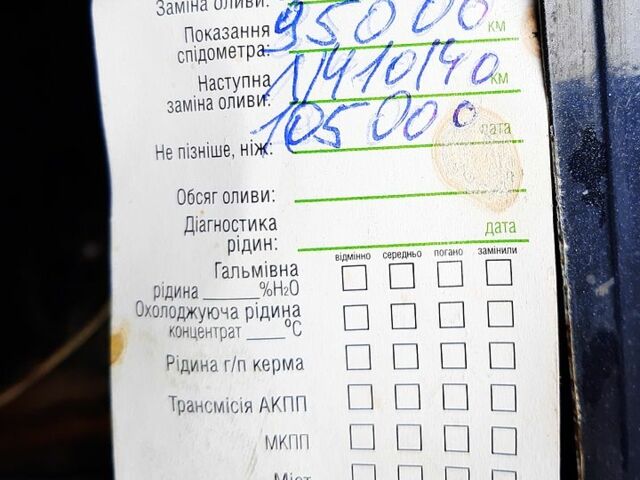 Заміна оливи: 95000
Показання км
спідометра:
Наступна км
заміна оливи:
105000 дата
Не пізніше, ніж:
Обсяг оливи:
Діагностика дата
рідин:
відмінно середньо погано замінили
Гальмівна
рідина ______%H₂O
Охолоджуюча рідина
концентрат ____°C
Рідина г/п керма
Трансмісія АКПП
МКПП
Міст